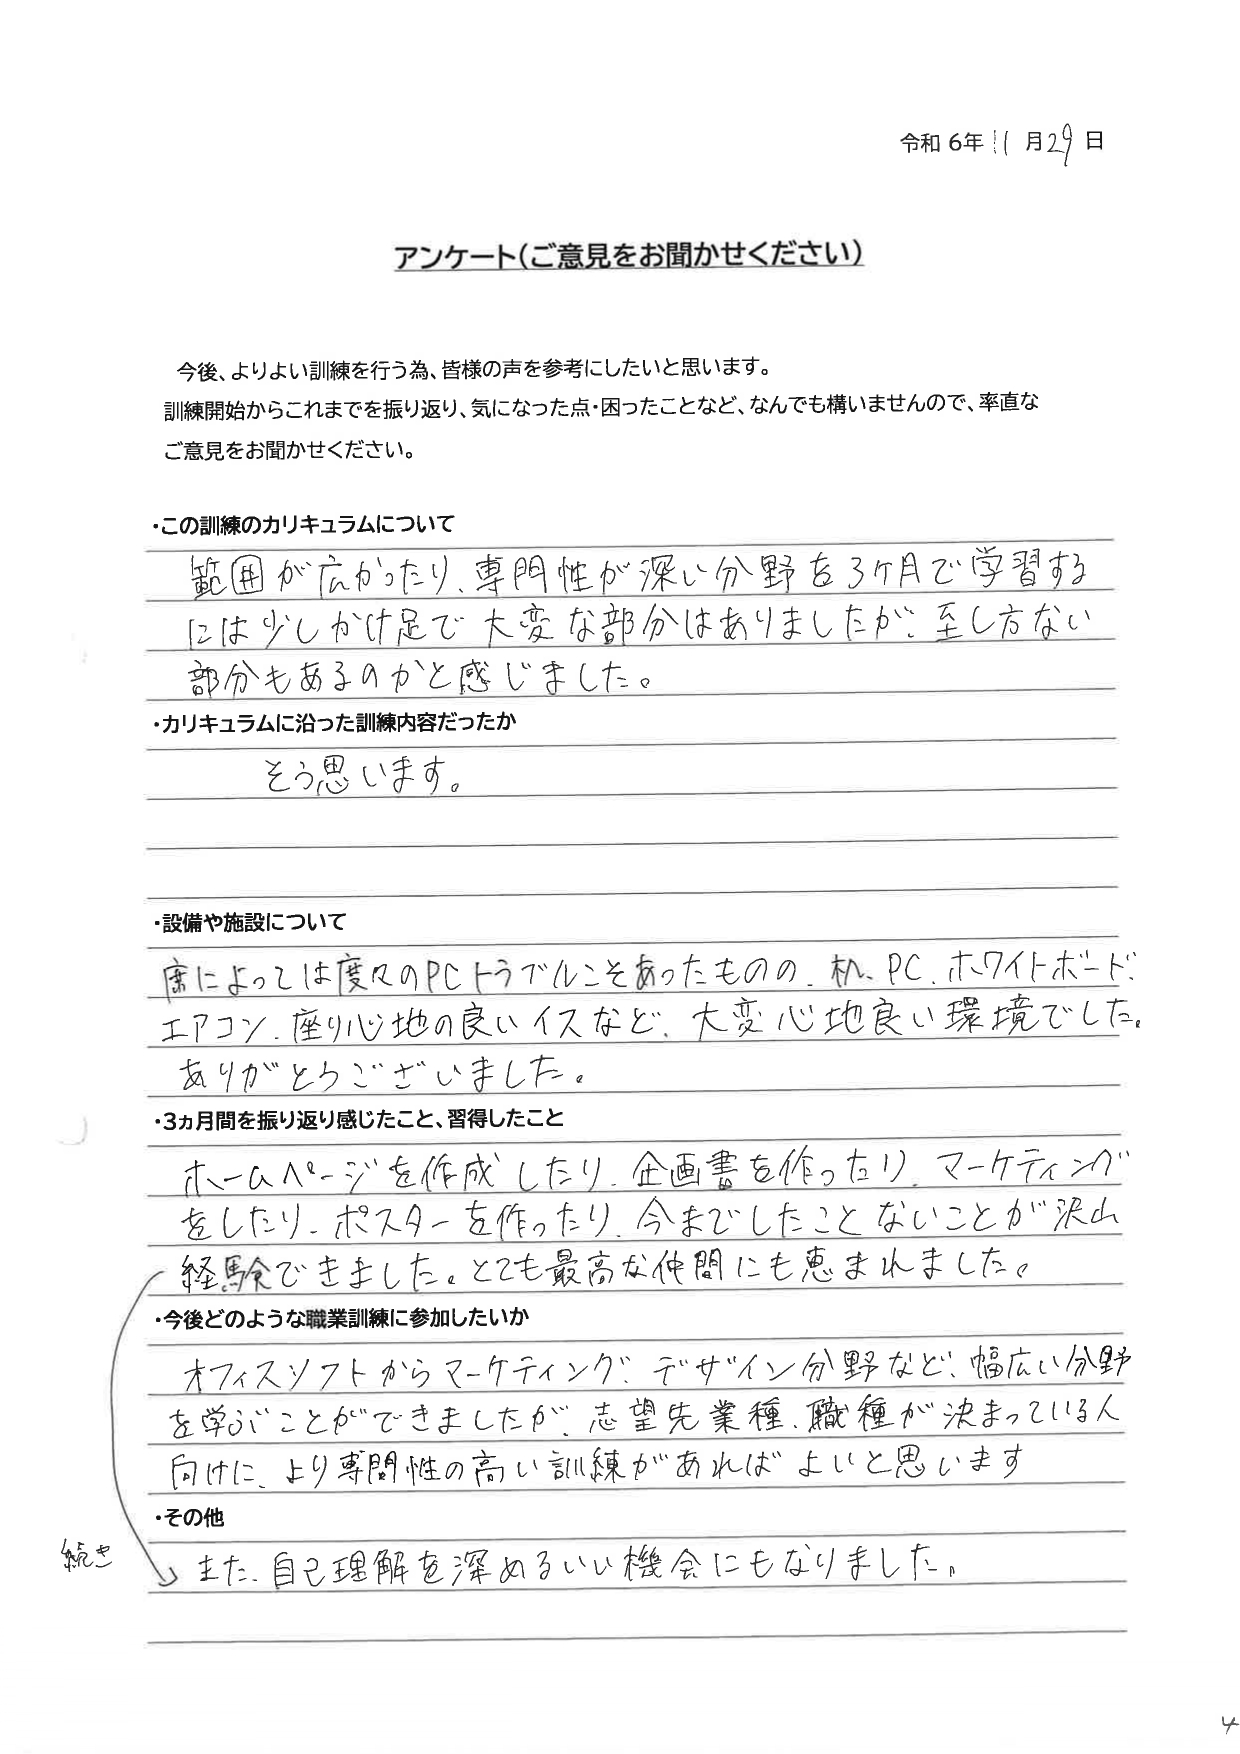 令和 6年 11 月 29 日
アンケート(ご意見をお聞かせください)
今後、よりよい訓練を行う為、皆様の声を参考にしたいと思います。
訓練開始からこれまでを振り返り、気になった点・困ったことなど、なんでも構いませんので、率直な
ご意見をお聞かせください。
・この訓練のカリキュラムについて
範囲が広かったり、専門性が深い分野を3ケ月で学習する
には少しかけ足で大変な部分はありましたが、至し方ない
部分もあるのかと感じました。
・カリキュラムに沿った訓練内容だったか
そう思います。
・設備や施設について
席によっては度々のPCトラブルこそあったものの、机、PC、ホワイトボード、
エアコン、座り心地の良いイスなど、大変心地良い環境でした。
ありがとうございました。
・3ヵ月間を振り返り感じたこと、習得したこと
ホームページを作成したり、企画書を作ったり、マーケティング
をしたり、ポスターを作ったり、今までしたことないことが沢山
経験できました。とても最高な仲間にも恵まれました。
・今後どのような職業訓練に参加したいか
オフィスソフトからマーケティング、デザイン分野など、幅広い分野
を学ぶことができましたが、志望先業種、職種が決まっている人
向けに、より専門性の高い訓練があればよいと思います
・その他
続き
また、自己理解を深めるいい機会にもなりました。
4